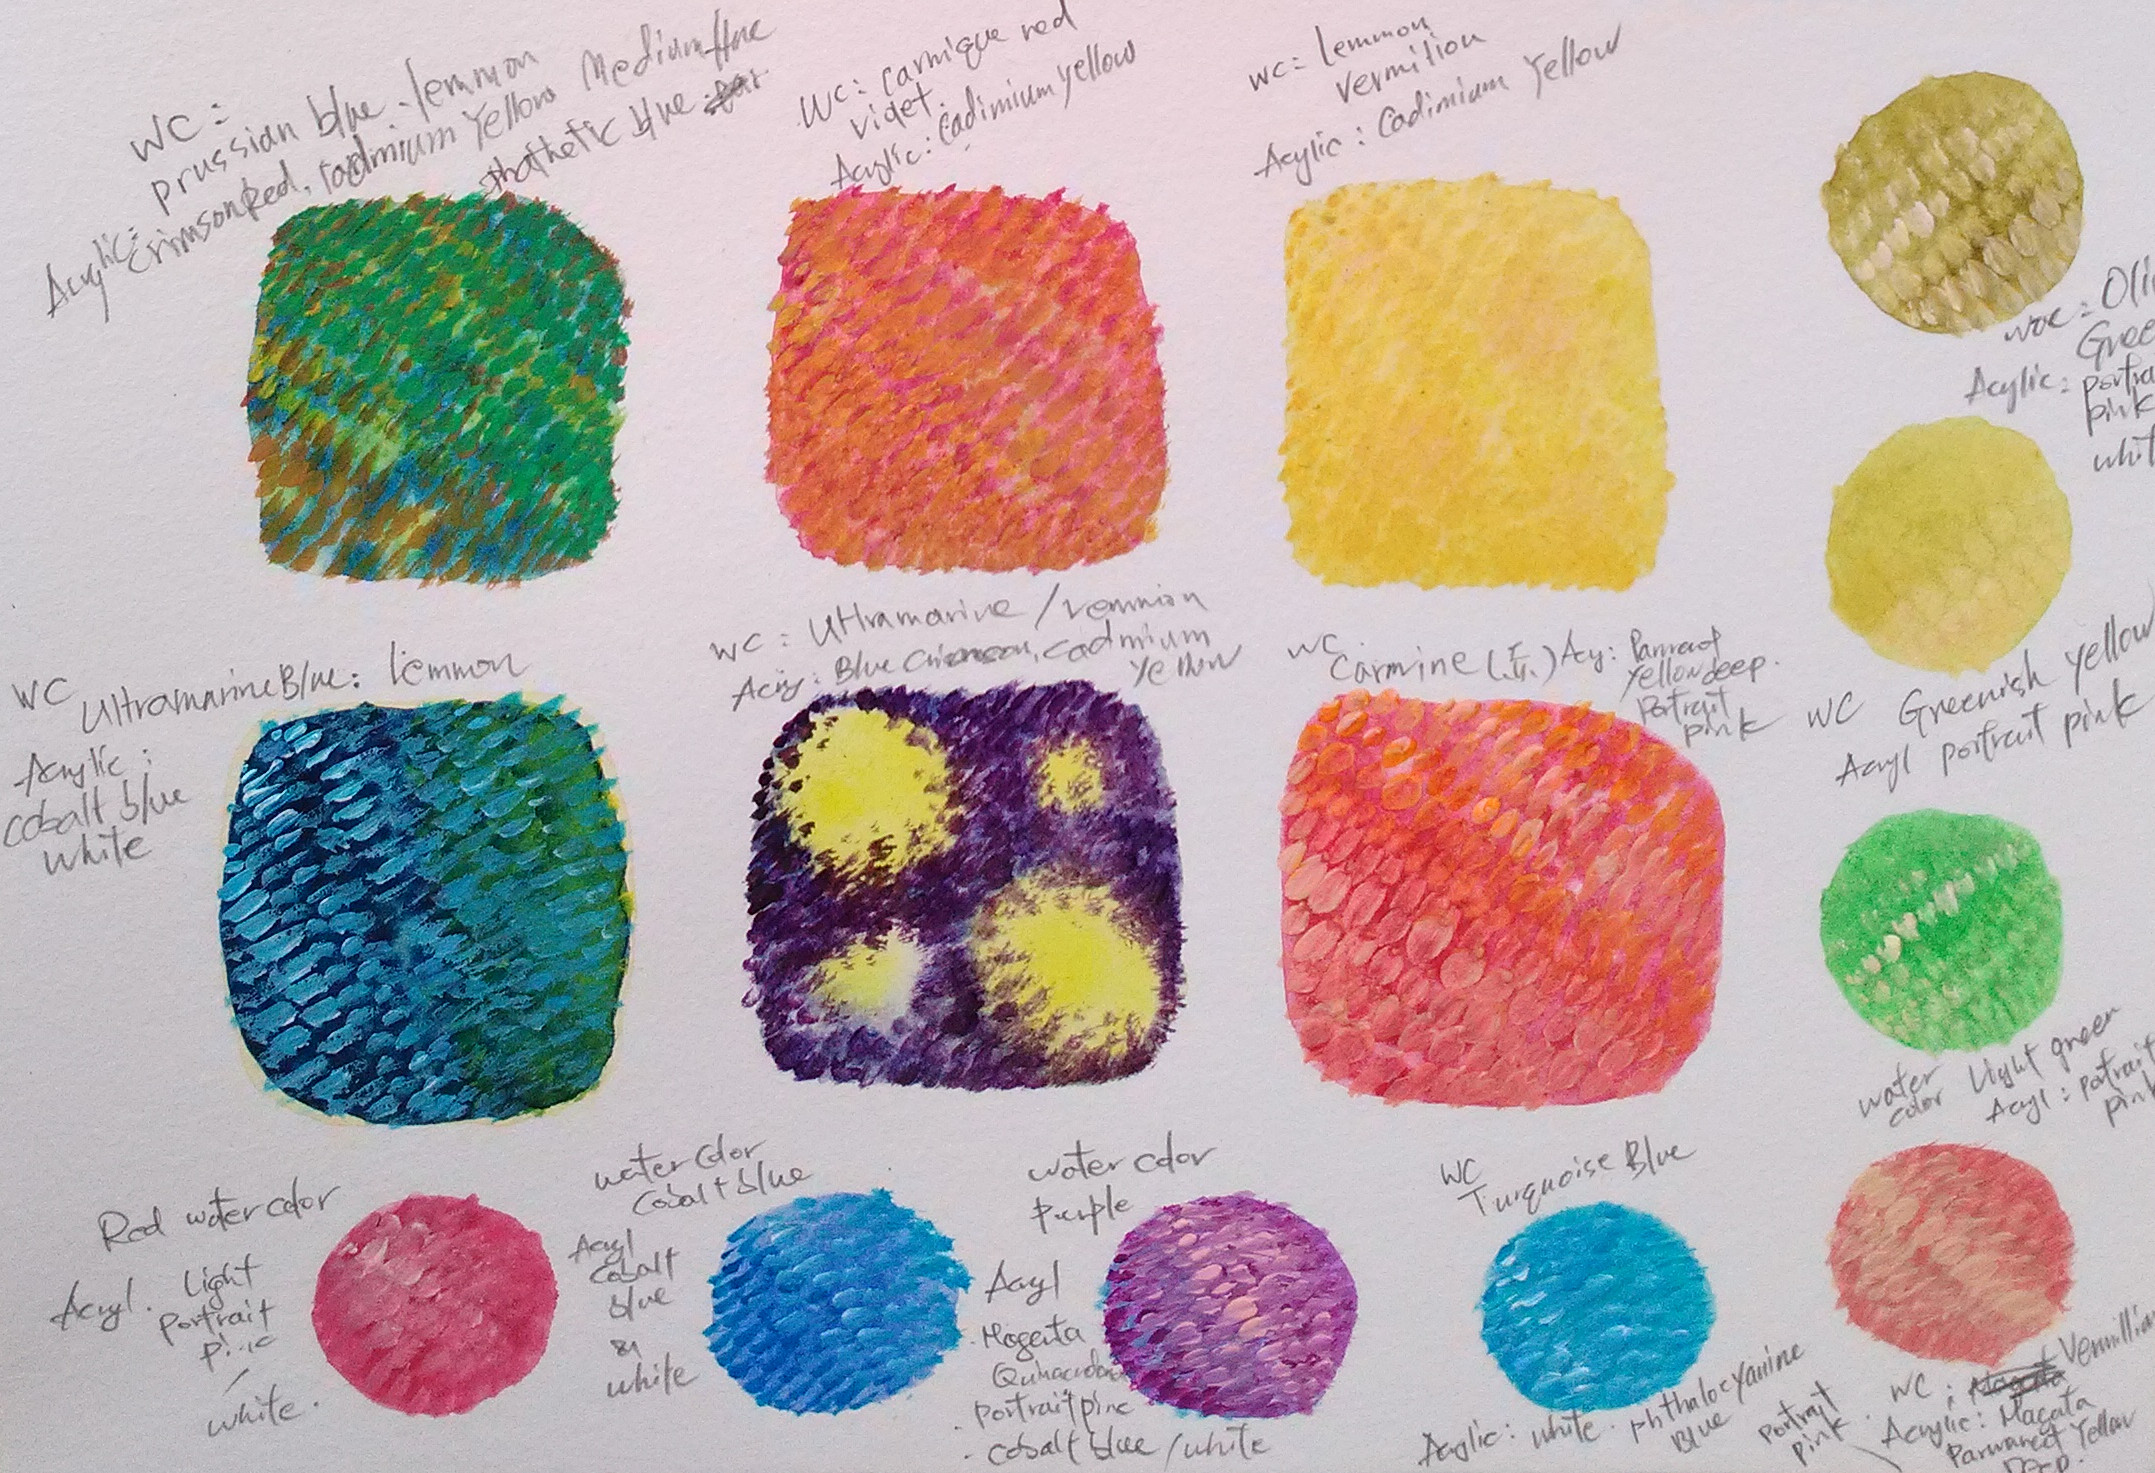 WC:
prussian blue - lemmon
Acrylic: crimson Red, cadmium Yellow Medium Hue
blue
WC: carmique red
videt.
Acrylic: Cadimium yellow
WC: lemmon
vermition
Acylic: Cadimium Yellow
Acylic:
pink
WC
UltramarineBlue: lemmon
Acrylic:
cobalt blue
white
WC: Ultramarine /
Acry: Blue cadmium
Yellow
WC.
Carmine Acy:
Yellow deep.
Portrait
pink
WC Greenish Yellow
Acryl portrait pink
water Light green
color Acryl: Portrait
Red watercolor
Acryl. Light
portrait
white.
watercolor
Cobalt blue
Acryl
Cobalt
blue
&
white
water color
purple
Acryl
Magenta
portrait pinc
- cobalt blue/white
WC
Turquoise Blue
Acrylic: white. phthalocyanine
Blue
Portrait
pink
WC:
Acrylic: Magata
Parmanect Yellow